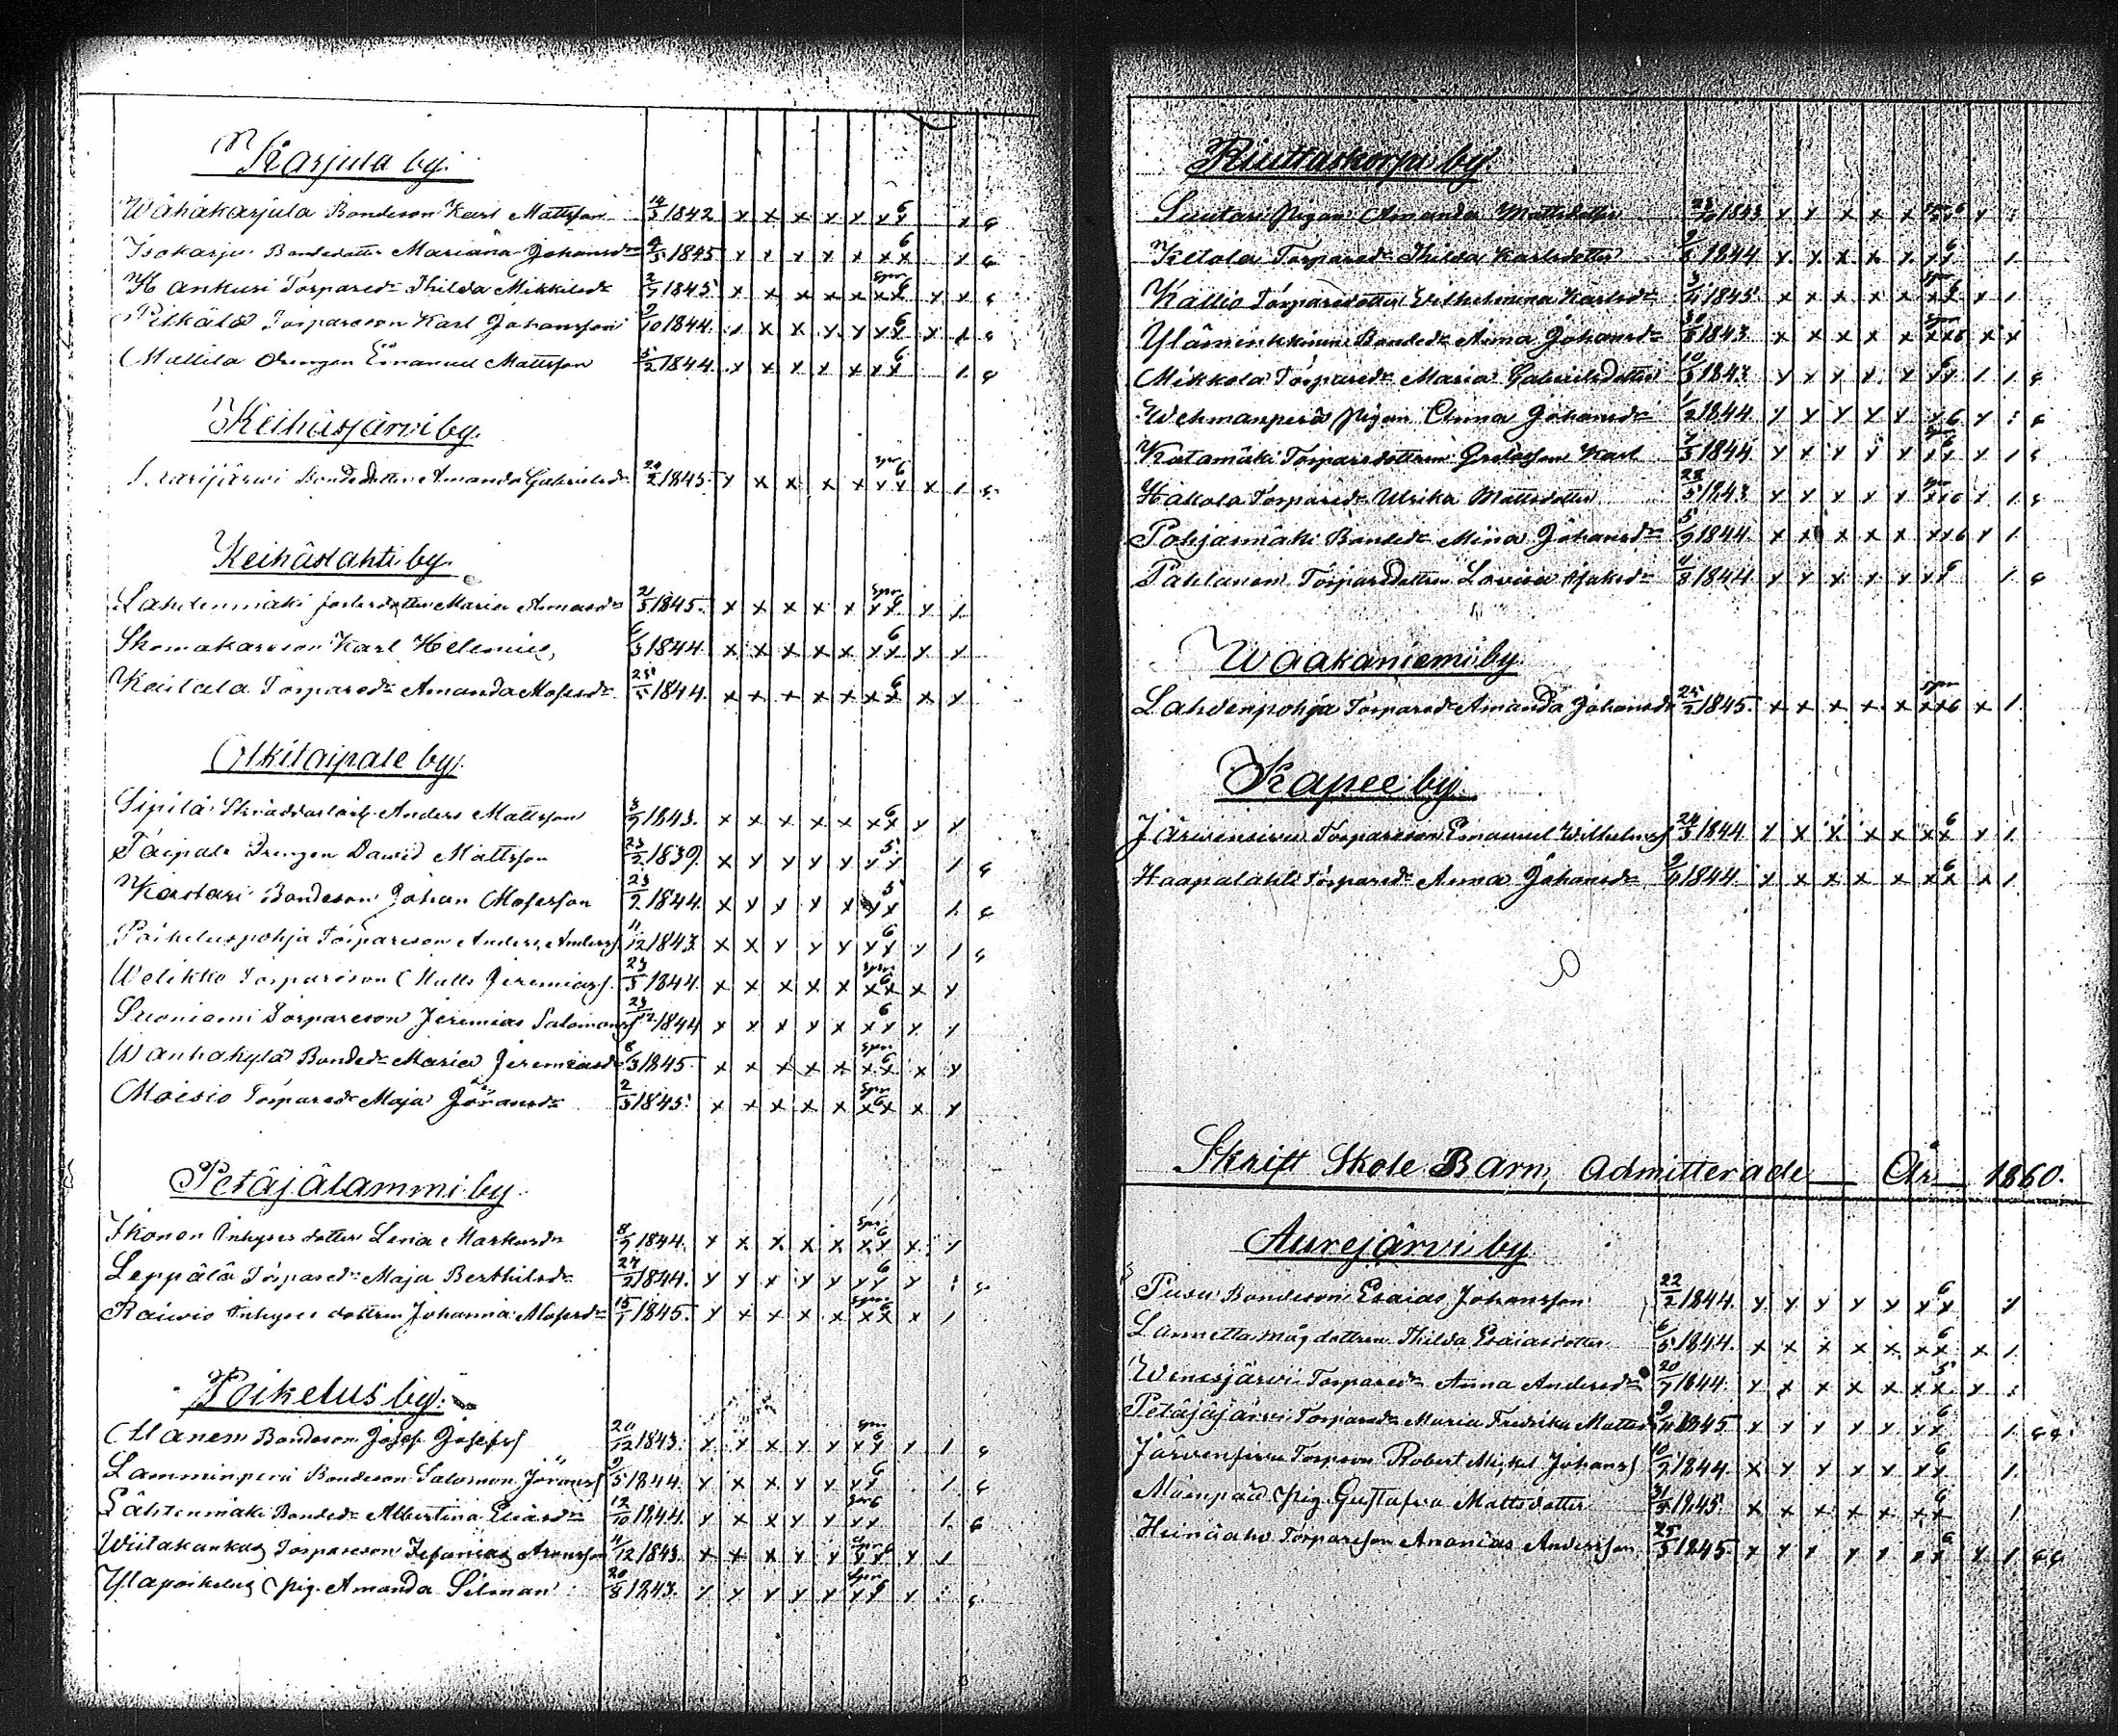 Karjula by.
Wähäkarjula Bondeson Karl Mattsson 14/3 1842 x x x x x x x 6 x
Isokarju Bondedotter Mariana Johansdr 4/5 1845 x x x x x x x 6 x
Hankuri Torparedr Thilda Mikkilsdr 2/7 1845 x x x x x x x spr 6 x x
Pelkälä Torpareson Karl Johansson 9/10 1844. x x x x x x x 6 x 1
Mullila drengen Emanuel Mattsson 5/2 1844. x x x x x x x 6 1.
Keihäsjärvi by.
Bondedotter Amanda Gabrielsdr 20/2 1845. x x x x x x x spr 6 x 1.
Keihäslahti by.
Lahdenmäki dotter Maria 21/3 1845. x x x x x x x spr 6 x 1.
Skomakareson Karl Helenius, 6/3 1844 x x x x x x x 6 x x
Keilala Torparedr Amanda Mosesdr 25/5 1844. x x x x x x x 6 x x
Olkitaipale by.
Sipilä Skräddarlärl. Anders Mattsson 3/7 1843. x x x x x x x 6 x x
Taipale Drengen Dawid Mattsson 23/2 1839. x x x x x x x 5 1.
Kaskari Bondeson Johan Mosesson 23/2 1844. x x x x x x x 5 1.
Poikeluspohja Torpareson Anders Anderss. 11/12 1843. x x x x x x x 6 x 1
Welikko Torpareson Matts Jeremiass. 23/3 1844. x x x x x x x spr 6 x x
Suoniemi Torpareson Jeremias Salomonss 29/12 1844 x x x x x x x 6 x 1
Wanhakylä Bondedr Maria Jeremiasdr 6/3 1845 x x x x x x x spr 6 x x
Moisio Torparedr Maja Göransdr 2/3 1845. x x x x x x x spr 6 x x
Petäjälammi by.
Ikonen Inhyses dotter Lena Markusdr 8/7 1844. x x x x x x x spr 6 x 1
Leppälä Torparedr Maja Berthilsdr 27/2 1844. x x x x x x x 6 x
Raiwio Inhyses dottren Johanna Mosesdr 15/7 1845. x x x x x x x spr 6 x 1
Poikelus by.
Bondeson Josef Josefss 20/12 1843. x x x x x x x spr 6 x 1.
Lamminperä Bondeson Salomon Göranss 9/5 1844. x x x x x x x 6 1.
Lähtenmäki Bondedr Albertina Eliasdr 12/10 1844. x x x x x x x spr 6 1.
Wiitakankas Torpareson Zefanias Aronsson 11/12 1843. x x x x x x x spr 6 x x
Ylapoikelus pig. Amanda Silman 20/8 1843. x x x x x x x spr 6 x
Riuttaskorpi by.
Suutari Pigan Amanda Mattsdotter 23/10 1843 x x x x x x x spr 6 x
Ketola Torparedr Thilda Karlsdotter 9/8 1844 x x x x x x x 6 1.
Kallio Torparedotter Wilhelmina Karlsdr 3/4 1845. x x x x x x x spr 6 x 1
Yläminkkinen Bondedr Anna Johansdr 30/8 1843 x x x x x x x spr 6 x x
Mikkola Torparedr Maria Gabrielsdotter 10/3 1843. x x x x x x x 6 1 1
Wehmanperä Pigan Anna Johansdr 1/2 1844. x x x x x x x 6 x
Katamäki Torparedottren Karl 7/3 1844. x x x x x x x spr 6 x 1
Hakola Torparedr Ulrika Mattsdotter 28/5 1843. x x x x x x x spr 6 x 1.
Pohjanmäki Bondedr Mina Johansdr 5/9 1844. x x x x x x x 6 x 1.
Pahlanen Torparedottren Lovisa Isaksdr 4/8 1844. x x x x x x x 6 1.
Waakaniemi by.
Lahdenpohja Torparedr Amanda Johansdr 25/2 1845. x x x x x x x spr 6 x 1.
Kapee by.
Järwensivu Torpareson Emanuel Wilhelmss 24/3 1844 x x x x x x x 6 x 1.
Haapalahti Torparedr Anna Johansdr 9/4 1844. x x x x x x x 6 x 1.
Skrift Skole Barn, admitterade År 1860.
Aurejärvi by
Pusu Bondeson Esaias Johansson 22/2 1844. x x x x x x x 6 x
Lannetta dottren Thilda Esaiasdotter 6/5 1844. x x x x x x x 6 x 1.
Wenesjärvi Torparedr Anna Andersdr 20/7 1844. x x x x x x x 5 x
Petäjäjärvi Torparedr Maria Fredrika Mattsdr 9/4 1845 x x x x x x x 6 1.
Järvensivu Torpson Robert Mickel Johanss 10/2 1844. x x x x x x x 6 1.
Mäenpää Pig. Gustafva Mattsdotter 31/5 1845. x x x x x x x 6 1
Heinäaho Torpareson Ananias Andersson 25/3 1845. x x x x x x x 6 x 1